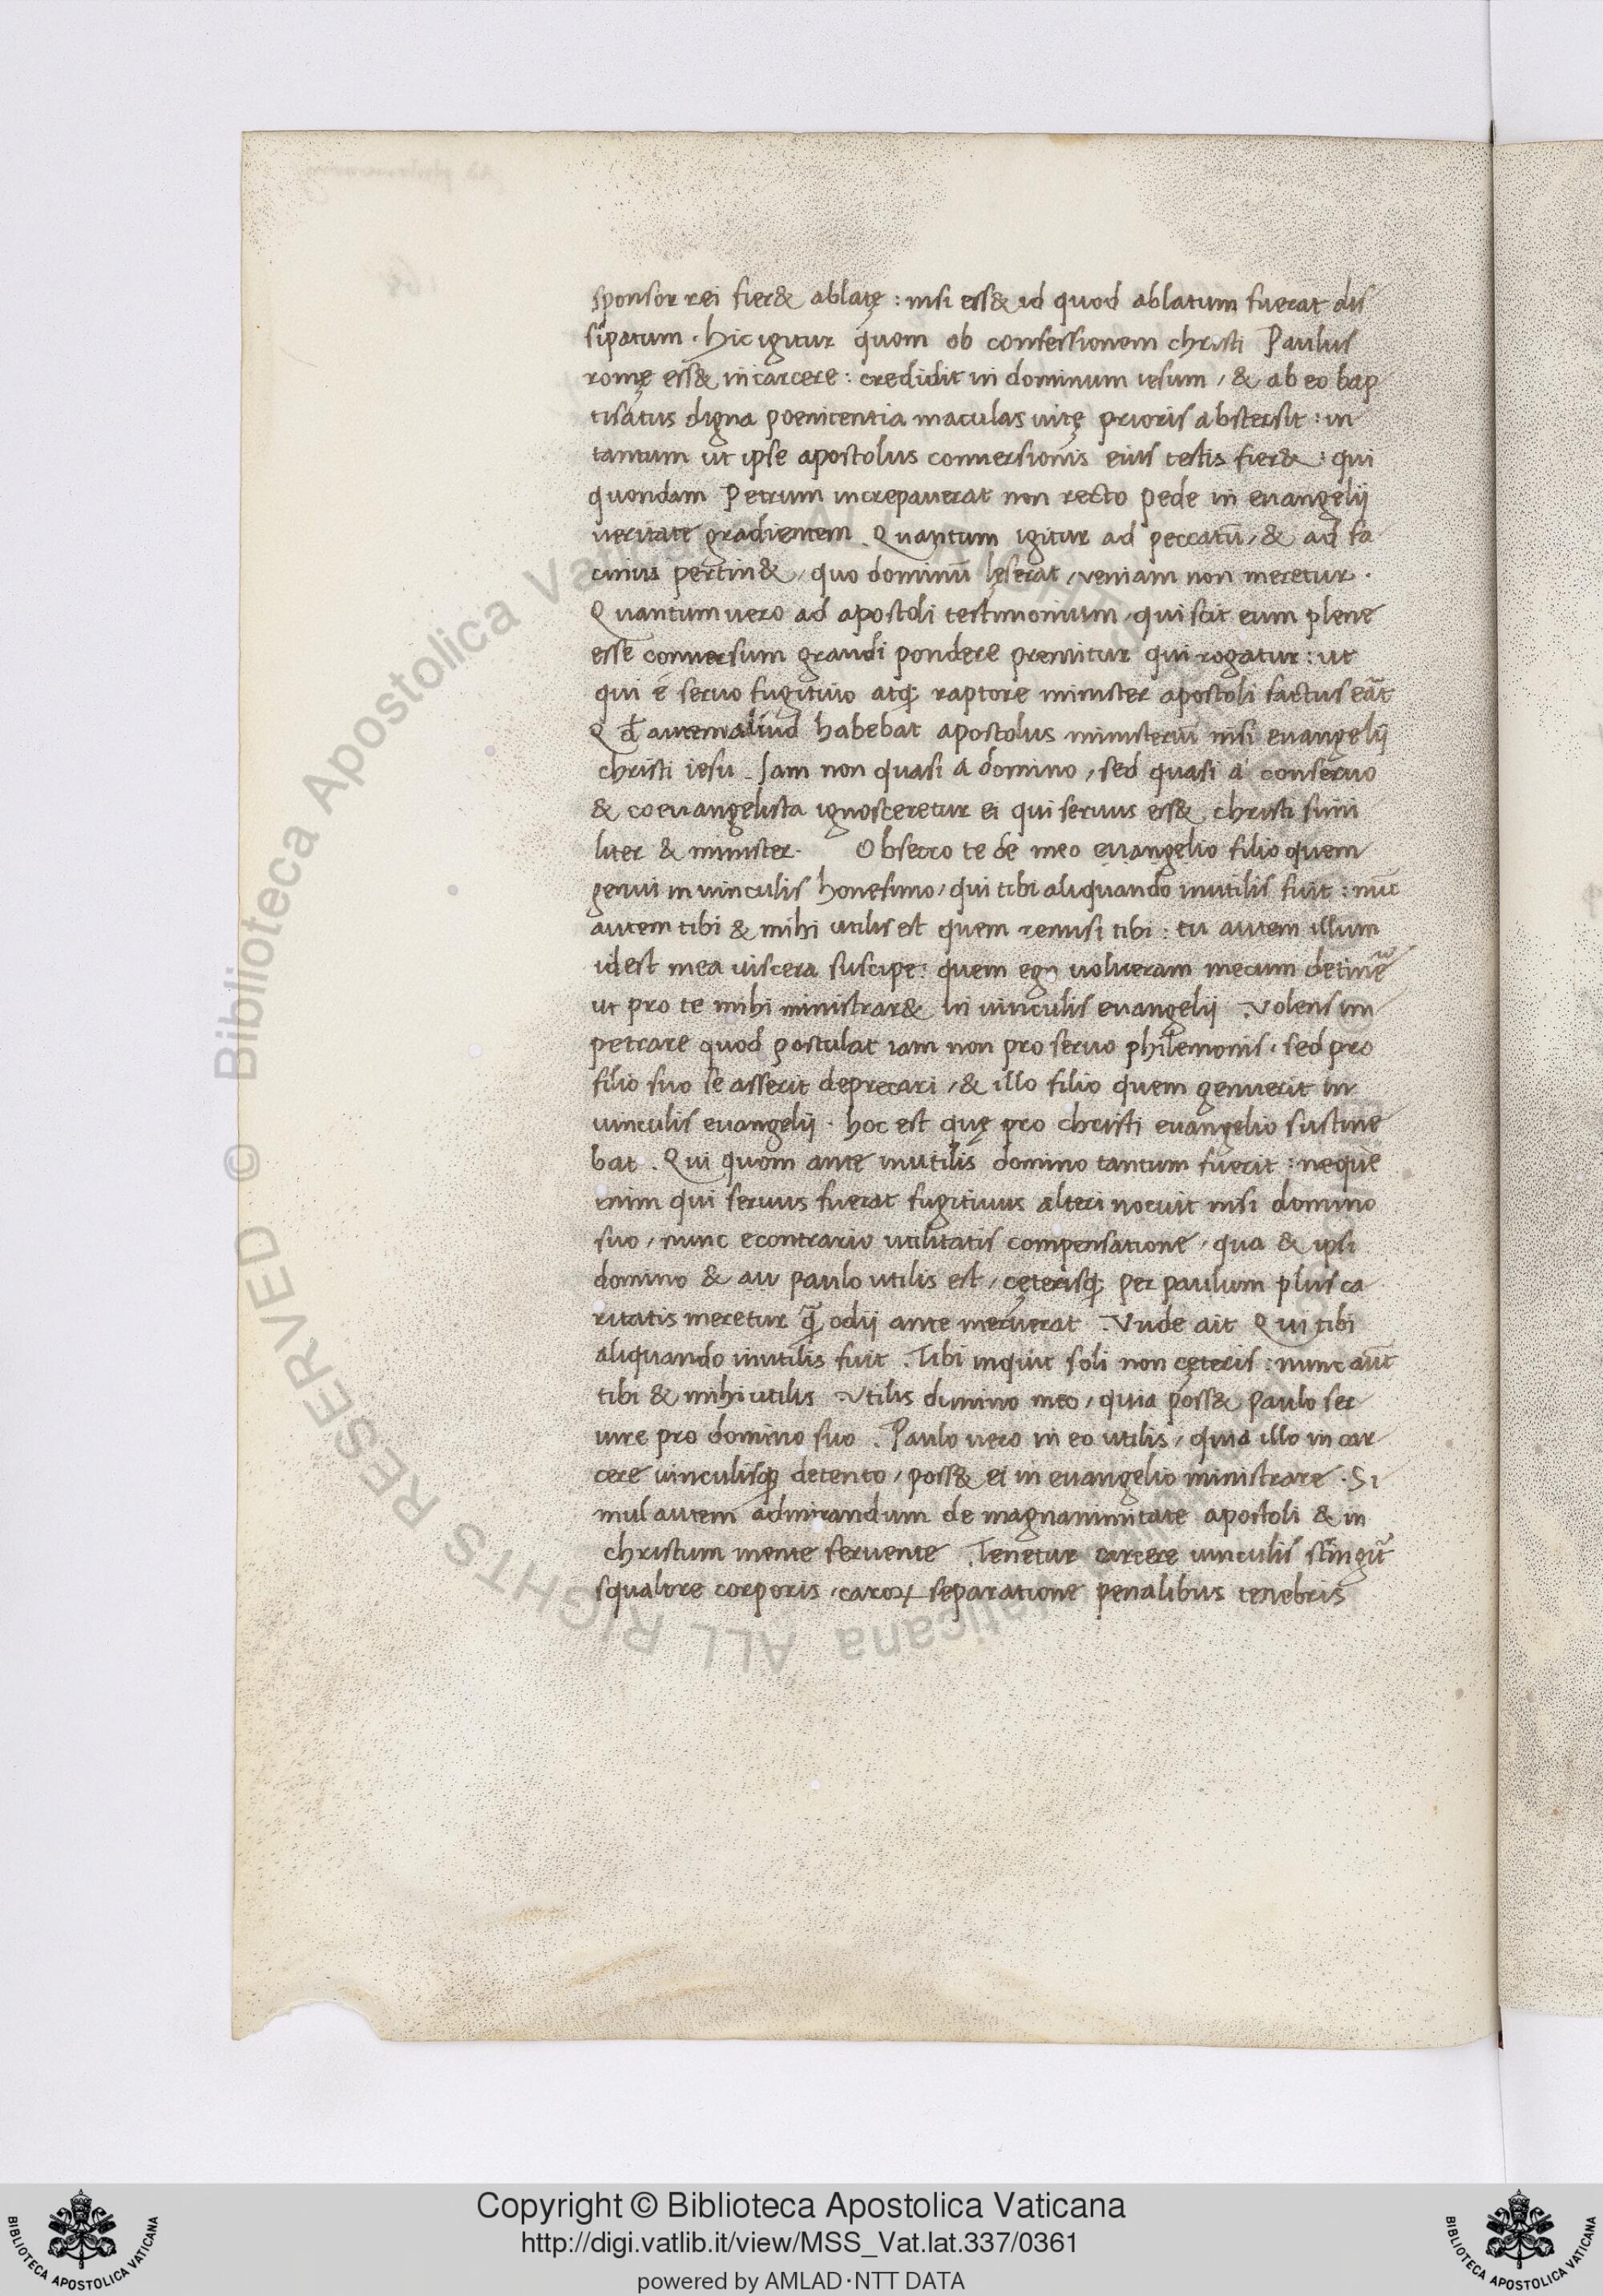 sponsor rei fier& ablatę : nisi ess& id quod ablatum fuerat dis
sipatum . hic igitur quom ob confessionem christi Paulus
romę ess& in carcere : credidit in dominum iesum / & ab eo bap
tisatus digna poenitentia maculas uitę prioris abstersit : in
tantum ut ipse apostolus conuersionis eius testis fier& : qui
quondam Petrum increpauerat non recto pede in euangelij
ueritate gradientem . Quantum igitur ad peccatū / & ad fa
cinus pertin& / quo dominū lęserat / ueniam non meretur .
Quantum uero ad apostoli testimonium / qui scit eum plene
esse conuersum grandi pondere premitur qui rogatur : ut
qui e seruo fugitiuo atq; raptore minister apostoli factus erāt
Qđ autem aliud habebat apostolus ministeriū nisi euangelij
christi iesu . Iam non quasi a domino / sed quasi a conseruo
& coeuangelista ignosceretur ei qui seruus ess& christi simi
liter & minister . Obsecro te de meo euangelio filio quem
genui in uinculis honesimo / qui tibi aliquando inutilis fuit : nūc
autem tibi & mihi utilis est quem remisi tibi : tu autem illum
id est mea uiscera suscipe : quem ego uolueram mecum detinē
ut pro te mihi ministrar& in uinculis euangelij . Volens im
petrare quod postulat iam non pro seruo philemonis . sed pro
filio suo se asserit deprecari / & illo filio quem genuerit in
uinculis euangelij . hoc est quę pro christi euangelio sustine
bat . Qui quom ante inutilis domino tantum fuerit : neque
enim qui seruus fuerat fugitiuus alteri nocuit nisi domino
suo / nunc econtrario utilitatis compensatione / qua & ipsi
domino & au paulo utilis est / cęterisq; per paulum plus ca
ritatis meretur q̄ odij ante meruerat . Vnde ait Qui tibi
aliquando inutilis fuit . Tibi inquit soli non cęteris : nunc aūt
tibi & mihi utilis Vtilis domino meo / quia poss& Paulo ser
uire pro domino suo . Paulo uero in eo utilis / quia illo in car
cere uinculisq; detento / poss& ei in euangelio ministrare . Si
mul autem admirandum de magnanimitate apostoli & in
christum mente feruente . Tenetur carcere uinculis stringit̄
squalore corporis . caroꝝ separatione penalibus tenebris
Copyright © Biblioteca Apostolica Vaticana
http://digi.vatlib.it/view/MSS_Vat.lat.337/0361
powered by AMLAD·NTT DATA
BIBLIOTECA APOSTOLICA VATICANA
BIBLIOTECA APOSTOLICA VATICANA